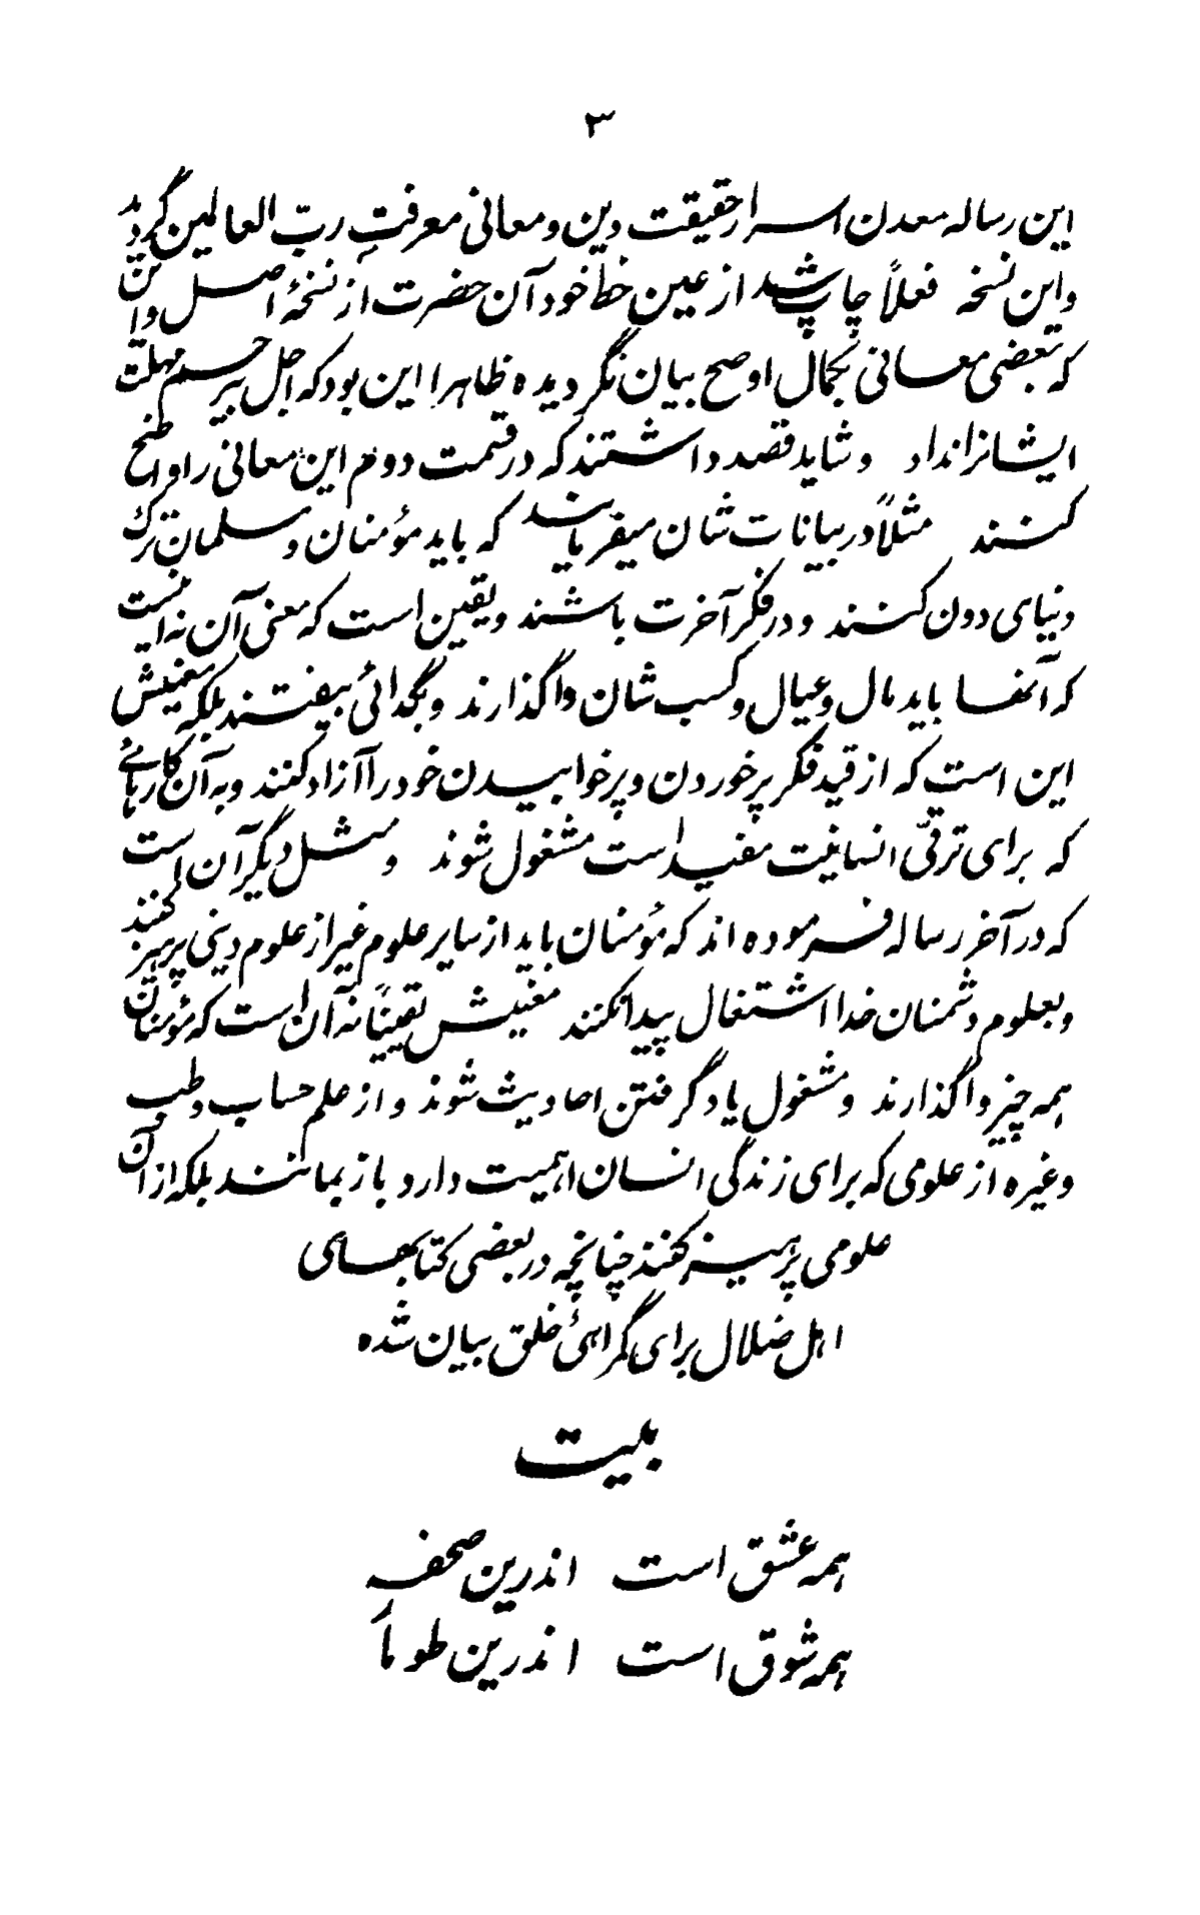 ۳
این رساله معدن اسرار حقیقت دین و معانی معرفتِ ربّ العالمین گردید
و این نسخه فعلاً چاپ شد از عین خط خود آن حضرت از نسخهٔ اصل و این
که بعضی معانی بکمال اوضح بیان نگردیده ظاهرا این بود که اجل بیرحم مهلت
ایشانرا نداد و شاید قصد داشتند که در قسمت دوم این معانی را واضح
کنند مثلاً در بیانات شان میفرمایند که باید مؤمنان و مسلمان ترک
دنیای دون کنند و در فکر آخرت باشند و یقین است که معنی آن نه اینست
که آنها باید مال و عیال و کسب شان واگذارند و بگدائی بیفتند بلکه معنیش
این است که از قید فکر پرخوردن و پرخوابیدن خود را آزاد کنند و به آن کارهائے
که برای ترقّی انسانیت مفید است مشغول شوند و مثل دیگر آن است
که در آخر رساله فرموده اند که مؤمنان باید از سایر علوم غیر از علوم دینی پرهیز کنند
و بعلوم دشمنان خدا اشتغال پیدا نکنند معنیش یقیناً نه آن است که مؤمنان
همه چیز واگذارند و مشغول یاد گرفتن احادیث شوند و از علم حساب و طب
و غیره از علومی که برای زندگی انسان اهمیت دارد باز بمانند بلکه از آن
علومی پرهیز کنند چنانچه در بعضی کتابهای
اهل ضلال برای گمراهئ خلق بیان شده
بیت
همه عشق است اندرین صحف
همه شوق است اندرین طومار